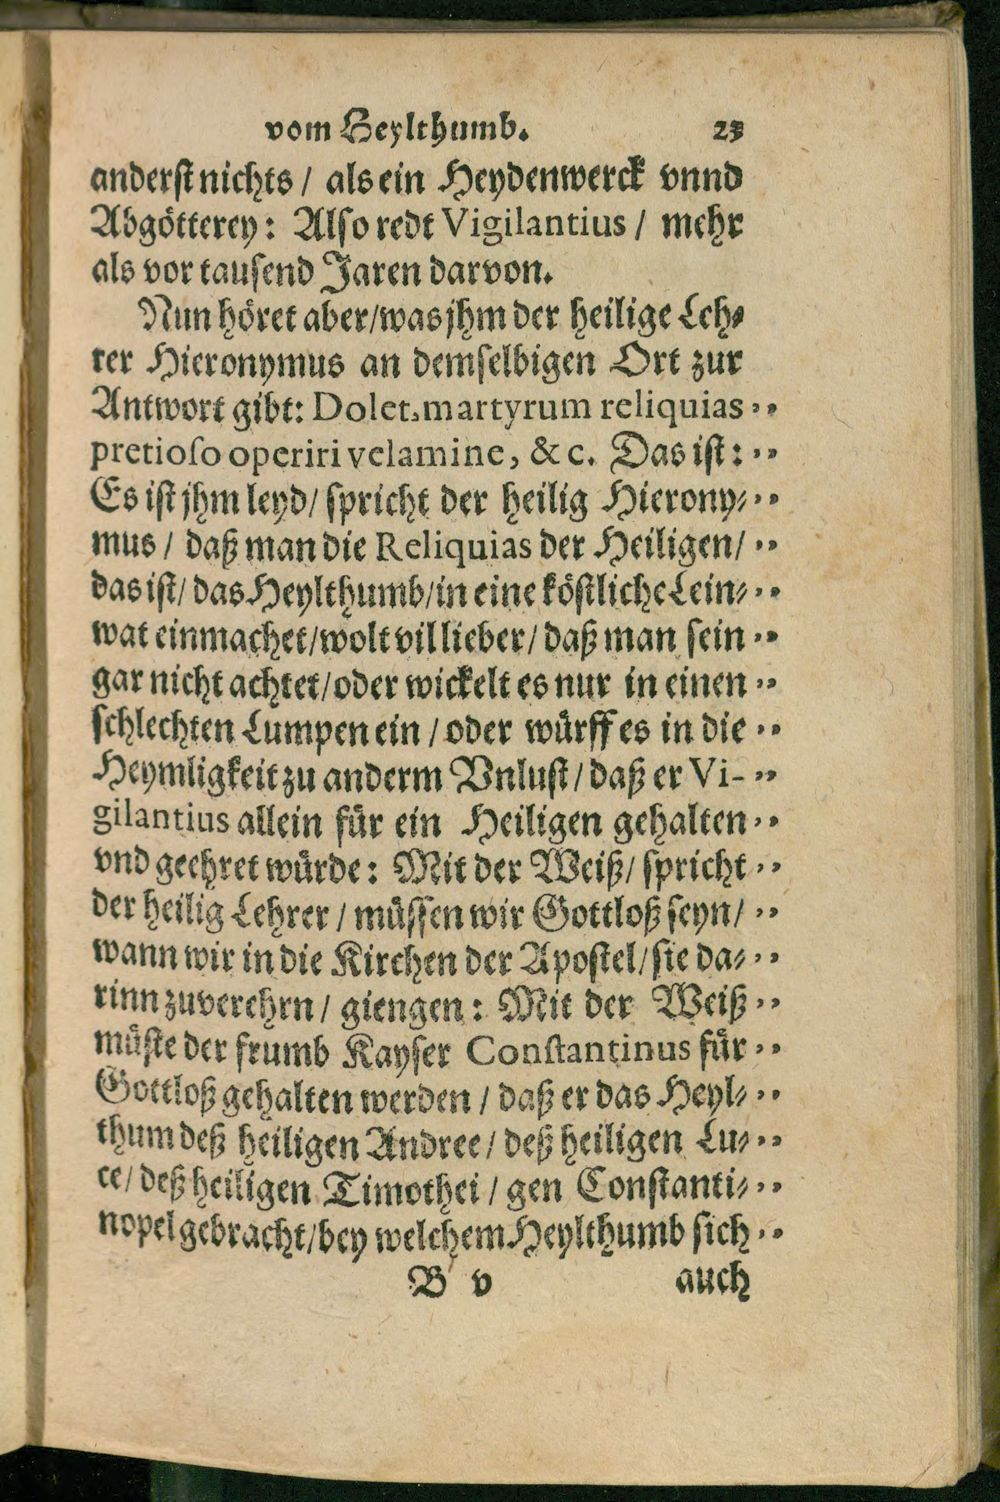 vom Heylthumb. 23
anderst nichts / als ein Heydenwerck vnnd
Abgötterey: Also redt Vigilantius / mehr
als vor tausend Jaren darvon.
Nun höret aber/was jhm der heilige Leh⸗
rer Hieronymus an demselbigen Ort zur
Antwort gibt: Dolet martyrum reliquias ,,
pretioſo operiri velamine, & c. Das ist: ,,
Es ist jhm leyd/ spricht der heilig Hierony⸗ ,,
mus / daß man die Reliquias der Heiligen/ ,,
das ist/ das Heylthumb/in eine köstliche Lein⸗ ,,
wat einmachet/wolt vil lieber/ daß man sein ,,
gar nicht achtet/oder wickelt es nur in einen ,,
schlechten Lumpen ein / oder würff es in die ,,
Heymligkeit zu anderm Vnlust/ daß er Vi- ,,
gilantius allein für ein Heiligen gehalten ,,
vnd geehret würde: Mit der Weiß/ spricht ,,
der heilig Lehrer / müssen wir Gottloß seyn/ ,,
wann wir in die Kirchen der Apostel/sie da⸗ ,,
rinn zuverehrn / giengen: Mit der Weiß ,,
müste der frumb Kayser Conſtantinus für ,,
Gottloß gehalten werden / daß er das Heyl⸗ ,,
thum deß heiligen Andree / deß heiligen Lu⸗ ,,
ce/ deß heiligen Timothei / gen Constanti⸗ ,,
nopel gebracht/bey welchem Heylthumb sich ,,
B v auch